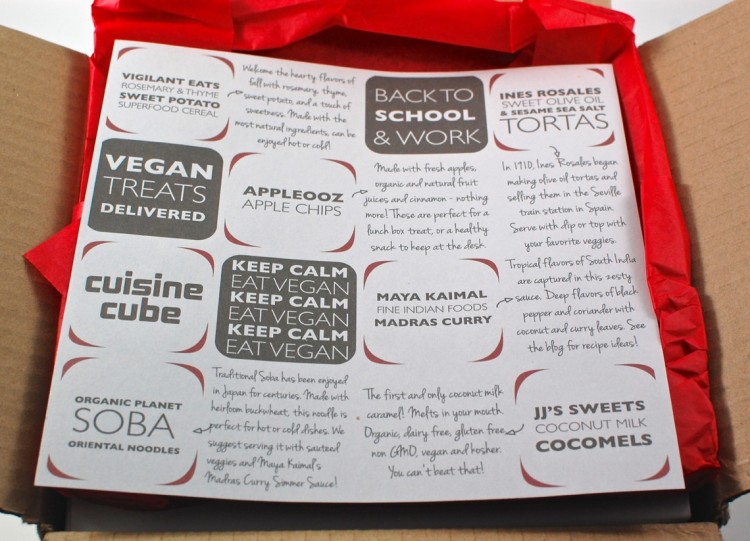 VIGILANT EATS
ROSEMARY & THYME
SWEET POTATO
SUPERFOOD CEREAL
Welcome the hearty flavors of
fall with rosemary, thyme,
sweet potato, and a touch of
sweetness. Made with the
most natural ingredients, can be
enjoyed hot or cold!
BACK TO
SCHOOL
& WORK
INES ROSALES
SWEET OLIVE OIL
& SESAME SEA SALT
TORTAS
VEGAN
TREATS
DELIVERED
APPLEOOZ
APPLE CHIPS
Made with fresh apples,
organic and natural fruit
juices and cinnamon - nothing
more! These are perfect for a
lunch box treat, or a healthy
snack to keep at the desk.
In 1910, Ines Rosales began
making olive oil tortas and
selling them in the Seville
train station in Spain.
Serve with dip or top with
your favorite veggies.
cuisine
cube
KEEP CALM
EAT VEGAN
KEEP CALM
EAT VEGAN
KEEP CALM
EAT VEGAN
MAYA KAIMAL
FINE INDIAN FOODS
MADRAS CURRY
Tropical flavors of South India
are captured in this zesty
sauce. Deep flavors of black
pepper and coriander with
coconut and curry leaves. See
the blog for recipe ideas!
ORGANIC PLANET
SOBA
ORIENTAL NOODLES
Traditional Soba has been enjoyed
in Japan for centuries. Made with
heirloom buckwheat, this noodle is
perfect for hot or cold dishes. We
suggest serving it with sauteed
veggies and Maya Kaimal's
Madras Curry Simmer Sauce!
The first and only coconut milk
caramel! Melts in your mouth.
Organic, dairy free, gluten free,
non GMO, vegan and kosher.
You can't beat that!
JJ'S SWEETS
COCONUT MILK
COCOMELS